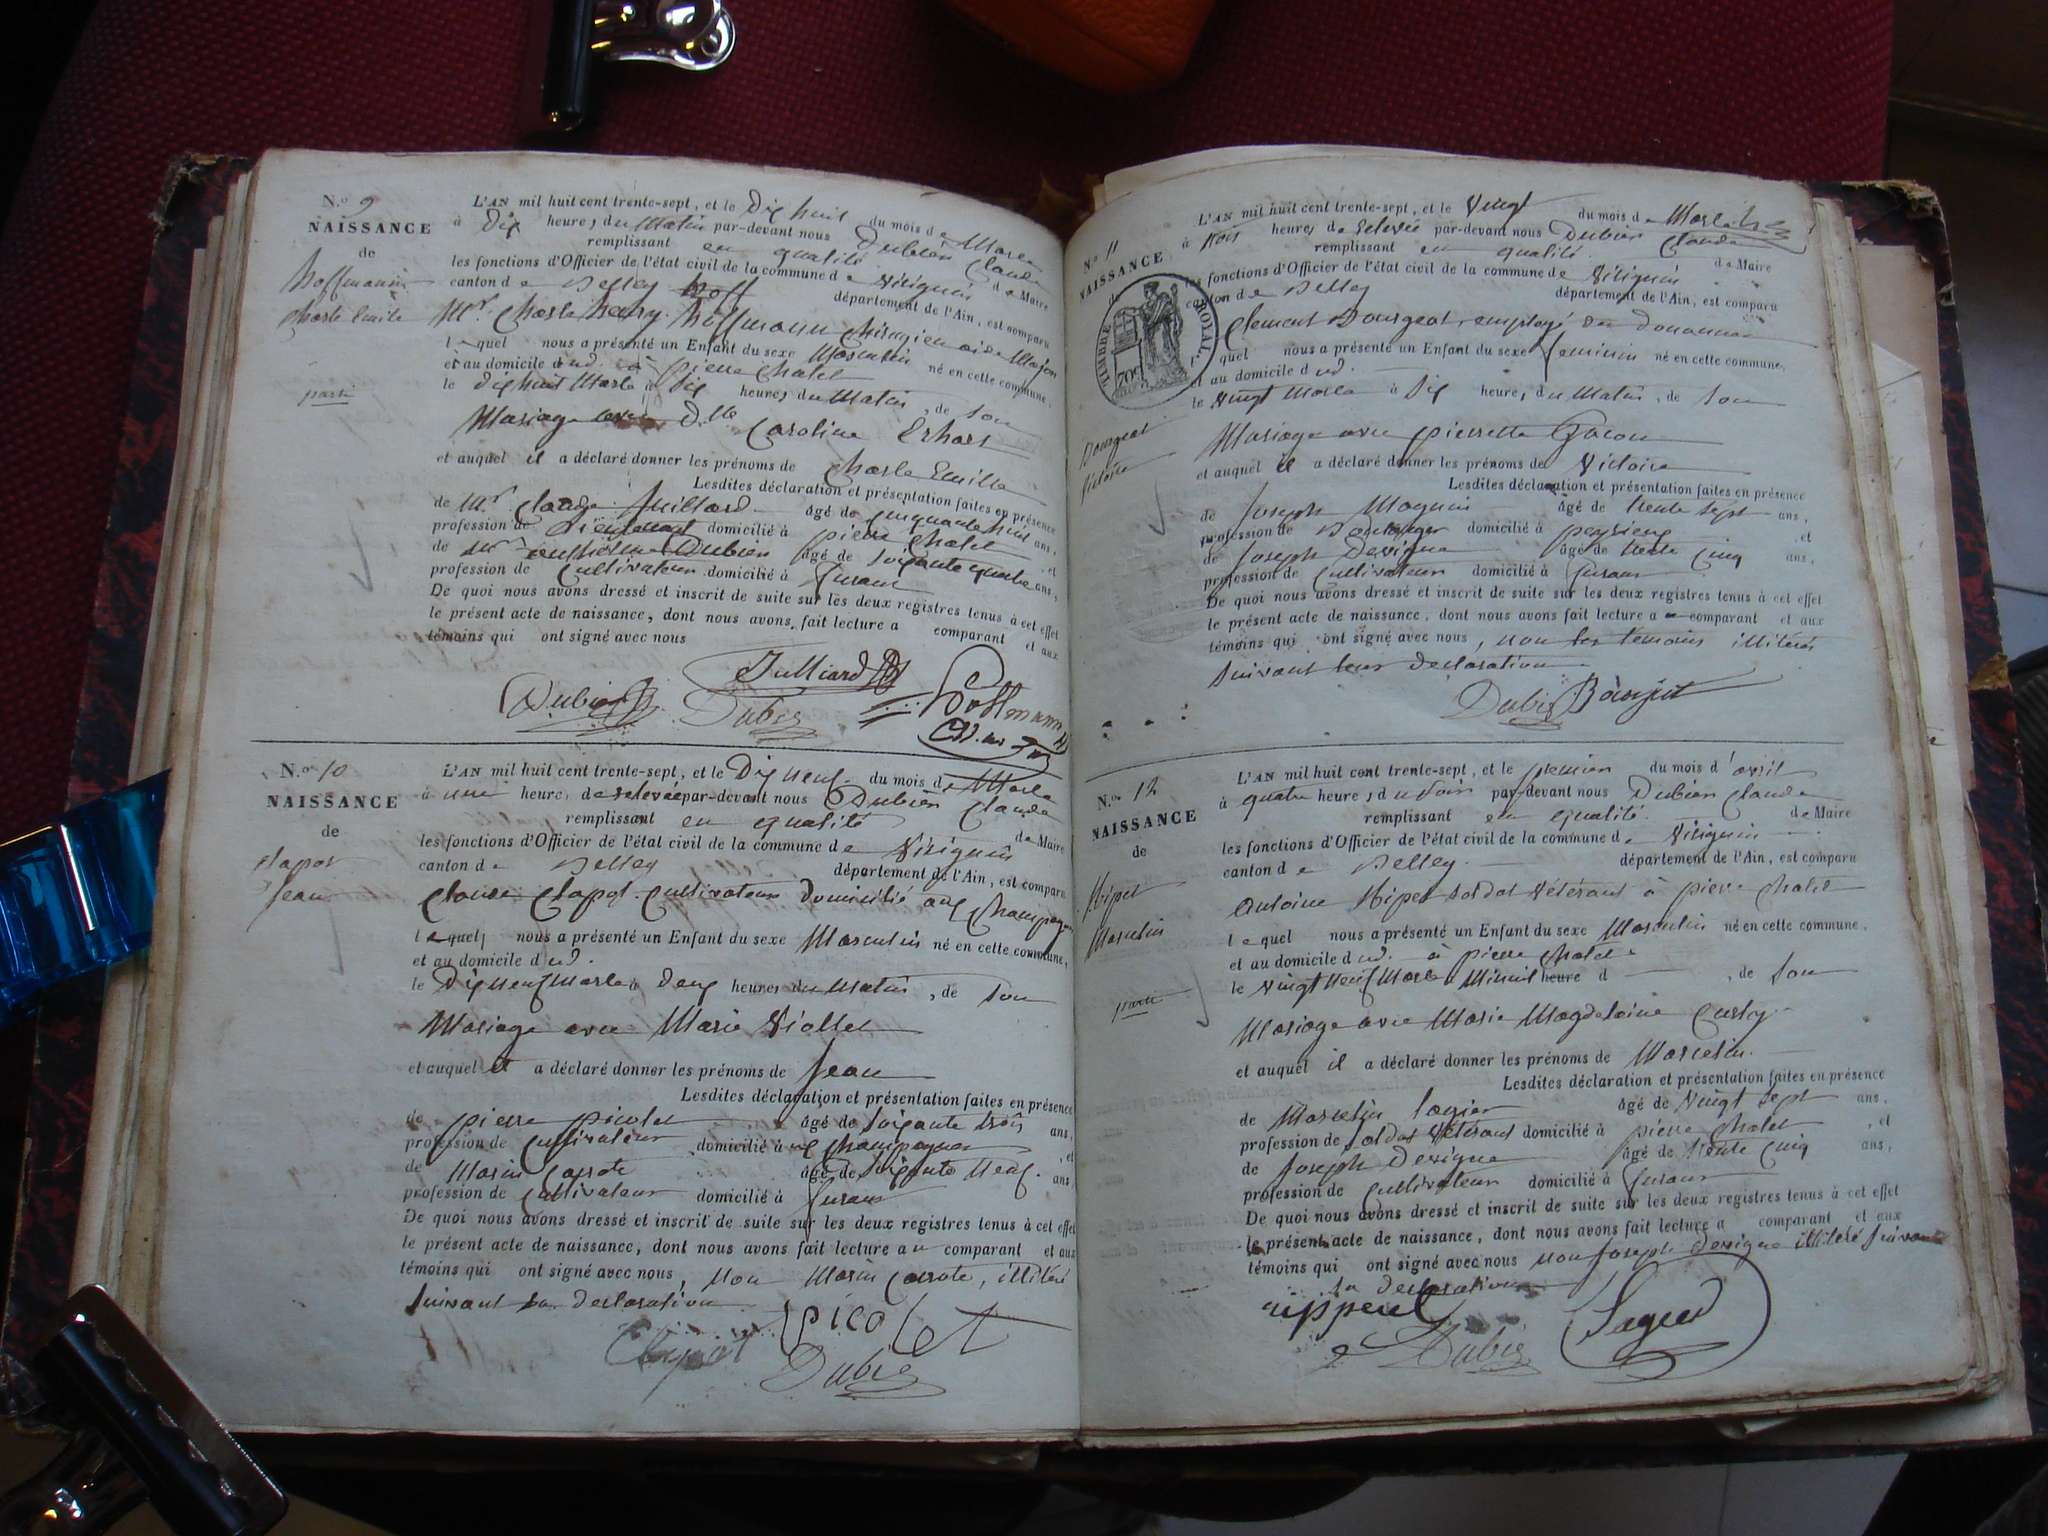 N.º 9
NAISSANCE
de
hoffmann
charle Emile
parti
L'AN mil huit cent trente-sept, et le Dix huit du mois de Mars
à Dix heures du Matin par-devant nous Dubien Claude
remplissant en qualité de Maire
les fonctions d'Officier de l'état civil de la commune de Virignin
canton de Belley département de l'Ain, est comparu
Mr. Charle henry hoffmann chirugien aide Major
lequel nous a présenté un Enfant du sexe Masculin né en cette commune,
et au domicile dud. à pierre chatel
le Dix huit Mars à Six heures du Matin, de son
Mariage avec Dlle Caroline Erhars
et auquel il a déclaré donner les prénoms de Charle Emille
Lesdites déclaration et présentation faites en présence
de Mr. Claude Juilliard âgé de cinquante huit ans,
profession de domicilié à pierre chatel et
de Dubien âgé de soixante quatre ans,
profession de Cultivateur domicilié à
De quoi nous avons dressé et inscrit de suite sur les deux registres tenus à cet effet
le présent acte de naissance, dont nous avons fait lecture a comparant et aux
témoins qui ont signé avec nous
Julliard
Dubien Dubien hoffmann
N.º 10
NAISSANCE
de
Clapot
Jean
L'AN mil huit cent trente-sept, et le Dix neuf du mois de Mars
à une heure, de relevée par-devant nous Dubien Claude
remplissant en qualité de Maire
les fonctions d'Officier de l'état civil de la commune de Virignin
canton de Belley département de l'Ain, est comparu
Claude Clapot cultivateur domicilié aux
lequel nous a présenté un Enfant du sexe Masculin né en cette commune,
et au domicile dud.
le Dix neuf mars à Deux heures du Matin, de son
Mariage avec Marie Viollet
et auquel il a déclaré donner les prénoms de Jean
Lesdites déclaration et présentation faites en présence
de pierre picolet âgé de soixante trois ans,
profession de Cultivateur domicilié à et
de Marin Carrote âgé de soixante neuf ans,
profession de Cultivateur domicilié à
De quoi nous avons dressé et inscrit de suite sur les deux registres tenus à cet effet
le présent acte de naissance, dont nous avons fait lecture au comparant et aux
témoins qui ont signé avec nous, non Marin Carrote, illitéré
suivant sa declaration
Clapot picolet
Dubien
N.º 11
NAISSANCE
de
TIMBRE ROYAL
70c
Bourgeat
Victoire
L'AN mil huit cent trente-sept, et le Vingt du mois de Mars
à trois heures de relevée par-devant nous Dubien Claude
remplissant en qualité de Maire
les fonctions d'Officier de l'état civil de la commune de Virignin
canton de Belley département de l'Ain, est comparu
Clement Bourgeat, employé des Douanes
lequel nous a présenté un Enfant du sexe feminin né en cette commune,
et au domicile dud.
le vingt mars à Six heures du Matin, de son
Mariage avec pierrette Gacon
et auquel il a déclaré donner les prénoms de Victoire
Lesdites déclaration et présentation faites en présence
de Joseph Magnin âgé de trente sept ans,
profession de Boulanger domicilié à peyrieux et
de Joseph Devigne âgé de trente cinq ans,
profession de Cultivateur domicilié à
De quoi nous avons dressé et inscrit de suite sur les deux registres tenus à cet effet
le présent acte de naissance, dont nous avons fait lecture a comparant et aux
témoins qui ont signé avec nous, non les temoins illitérés
suivant leur declaration
Dubien Bourjat
N.º 12
NAISSANCE
de
Hipet
Marcelin
parti
L'AN mil huit cent trente-sept, et le premier du mois d'avril
à quatre heures, du soir par-devant nous Dubien Claude
remplissant en qualité de Maire
les fonctions d'Officier de l'état civil de la commune de Virignin
canton de Belley département de l'Ain, est comparu
Antoine Hipet soldat Vétérant à pierre chatel
lequel nous a présenté un Enfant du sexe Masculin né en cette commune,
et au domicile dud. à pierre chatel
le vingt neuf mars à Minuit heure d , de son
Mariage avec Marie Magdelaine
et auquel il a déclaré donner les prénoms de Marcelin
Lesdites déclaration et présentation faites en présence
de Marcelin Lagier âgé de vingt sept ans,
profession de soldat Vétérant domicilié à pierre chatel, et
de Joseph Devigne âgé de trente cinq ans,
profession de Cultivateur domicilié à
De quoi nous avons dressé et inscrit de suite sur les deux registres tenus à cet effet
le présent acte de naissance, dont nous avons fait lecture a comparant et aux
témoins qui ont signé avec nous non Joseph Devigne illitéré suivant
sa declaration
Dubien Lagier